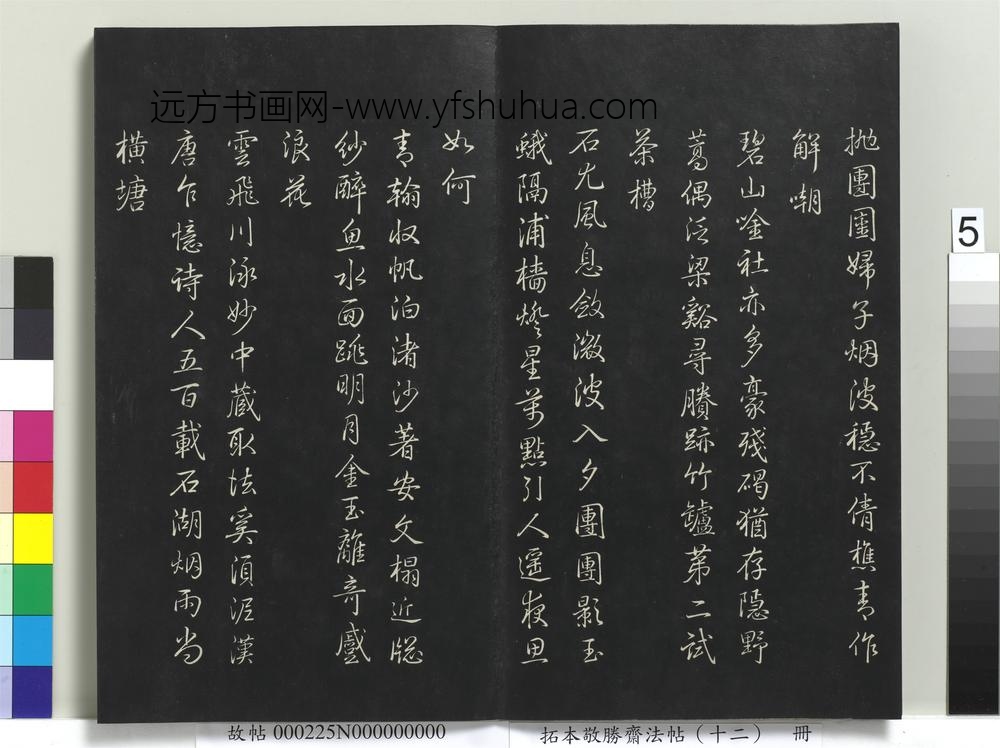 远方书画网-www.yfshuhua.com
抛團圞婦子烟波穩不倩樵青作
解嘲
碧山唫社亦多豪殘碣猶存隱野
蒿偶泛梁谿尋賸跡竹罏第二試
茶槽
石尤風息斂激波入夕團團影玉
蛾隔浦檣燈星萬點引人遥夜思
如何
青翰収帆泊渚沙著安文榻近牕
紗醉魚水面跳明月金玉離奇感
浪花
雲飛川泳妙中藏取法奚須泥漢
唐乍憶詩人五百載石湖烟雨尚
横塘
5
故帖 000225N000000000
拓本敬勝齋法帖（十二） 冊